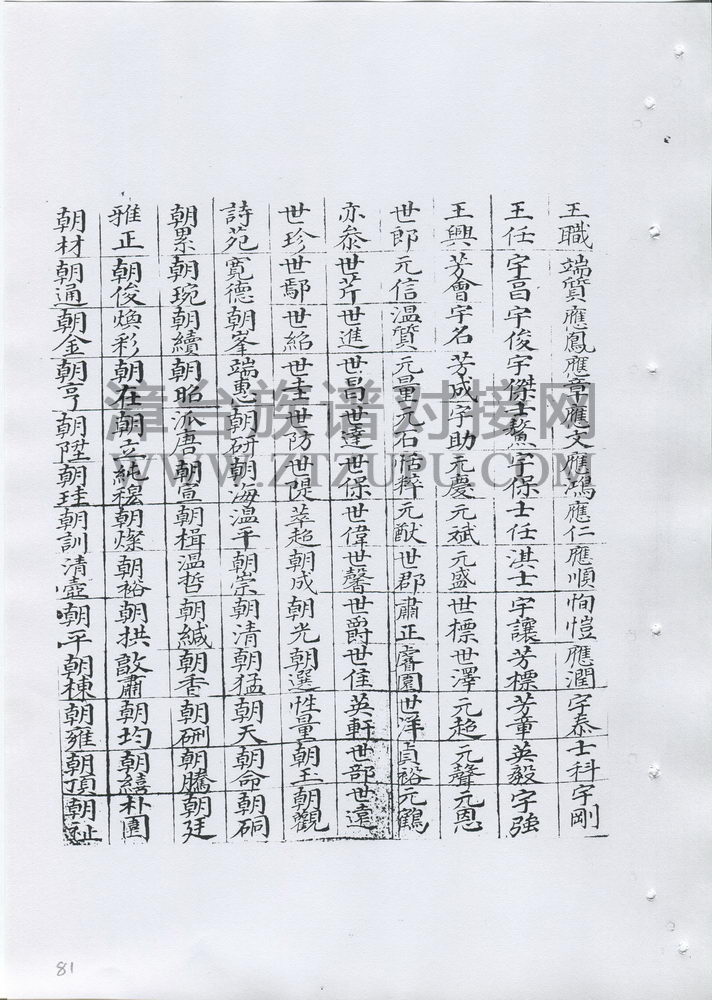 王職 端質 應鳳 應章 應文 應鴻 應仁 應順 恂愷 應潤 宇泰 士科 宇剛
王任 宇昌 宇俊 宇傑 士鰲 宇保 士任 淇士 宇讓 芳標 芳童 英毅 宇強
王興 芳會 宇名 芳成 宇助 元慶 元斌 元盛 世標 世澤 元超 元聲 元恩
世郎 元信 溫質 元量 元石 恬粹 元猷 世郡 肅正 睿園 世洋 貞裕 元鶴
亦泰 世芹 世進 世昌 世達 世保 世偉 世馨 世爵 世佳 英軒 世部 世遠
世珍 世鄢 世紹 世圭 世防 世隄 萃超 朝成 朝光 朝選 性量 朝玉 朝觀
詩苑 寬德 朝峯 端惠 朝研 朝海 溫平 朝崇 朝清 朝猛 朝天 朝命 朝硐
朝累 朝琬 朝續 朝昭 派唐 朝宣 朝楫 溫哲 朝緘 朝香 朝硎 朝騰 朝廷
雅正 朝俊 煥彩 朝在 朝立 純穆 朝燦 朝裕 朝拱 敦肅 朝均 朝繕 朴園
朝材 朝通 朝金 朝亨 朝陞 朝珪 朝訓 清壺 朝平 朝棟 朝雍 朝頂 朝
漳台族谱对接网
WWW.ZTZUPU.COM
81